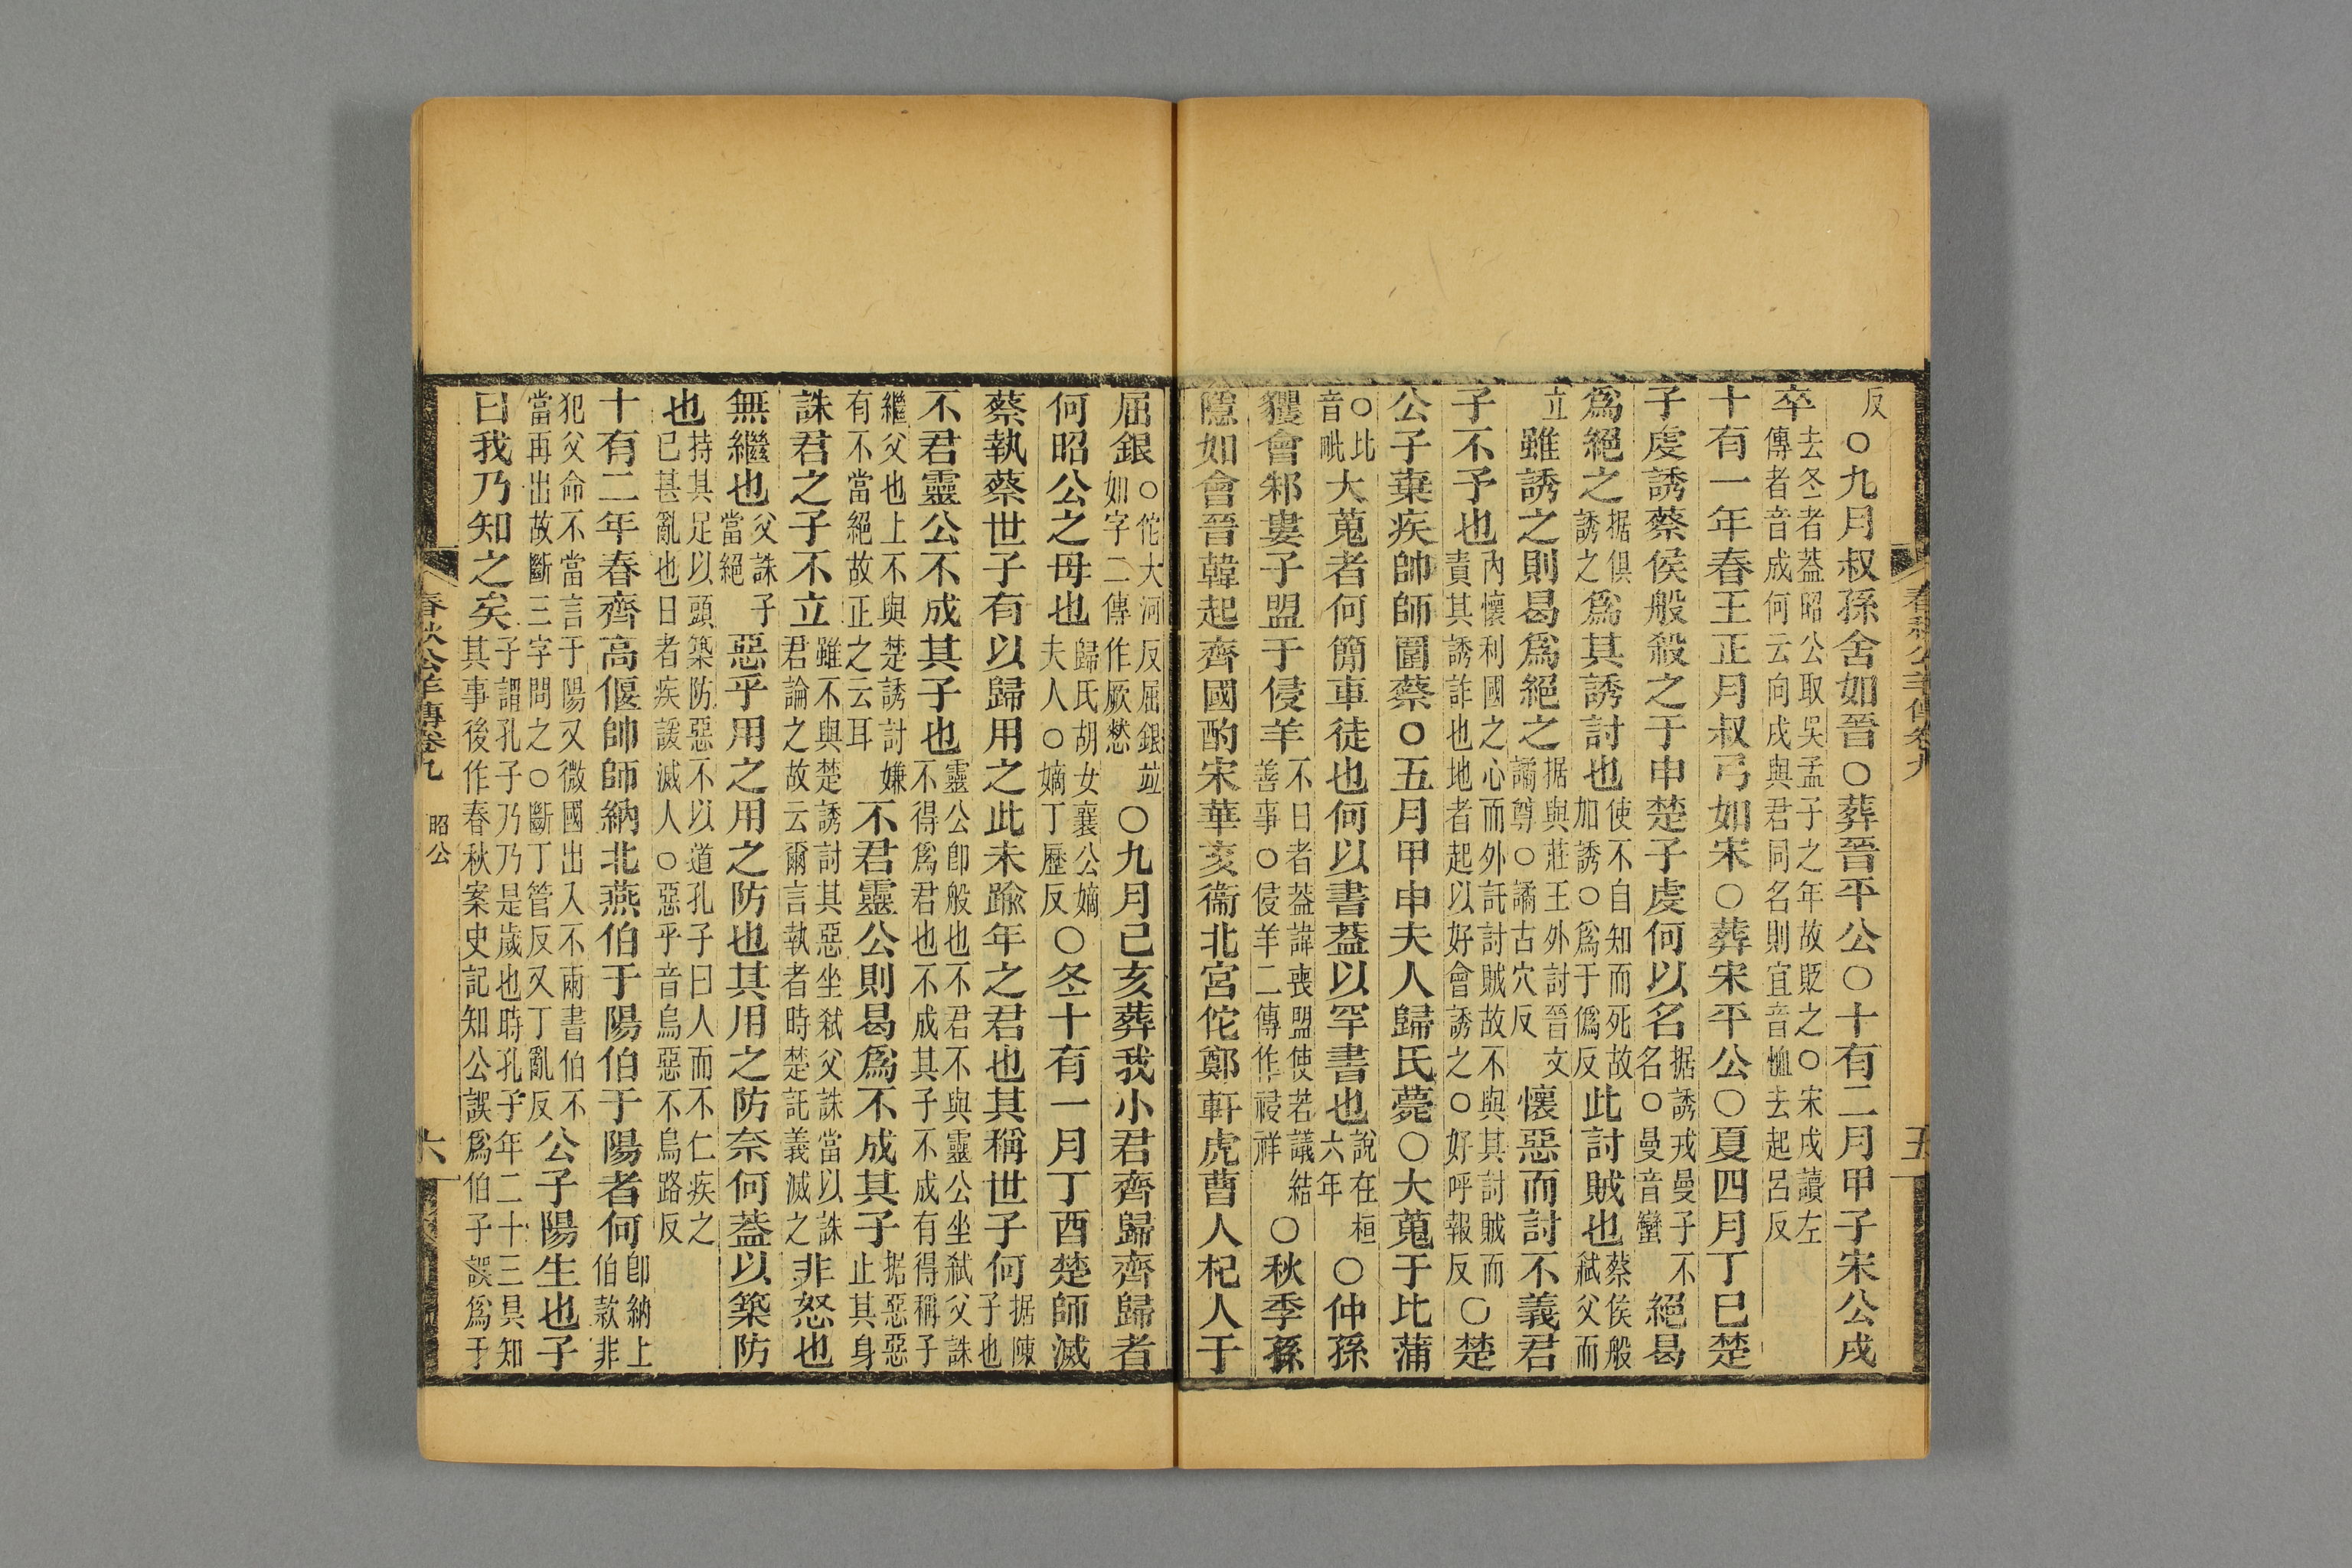 反○九月叔孫舍如晉○葬晉平公○十有二月甲子宋公戌
卒去冬者葢昭公取吳孟子之年故貶之○宋戌讀左傳者音成何云向戌與君同名則宜音恤去起呂反
十有一年春王正月叔弓如宋○葬宋平公○夏四月丁巳楚
子虔誘蔡侯般殺之于申楚子虔何以名据誘戎曼子不名○曼音蠻絕曷
爲絕之据俱誘之爲其誘討也使不自知而死故加誘○爲于僞反此討賊也蔡侯般弒父而
立雖誘之則曷爲絕之据與莊王外討晉文譎尊○譎古穴反懷惡而討不義君
子不予也內懷利國之心而外託討賊故不與其討賊而責其誘詐也地者起以好會誘之○好呼報反○楚
公子棄疾帥師圍蔡○五月甲申夫人歸氏薨○大蒐于比蒲
○比音毗大蒐者何簡車徒也何以書葢以罕書也說在桓六年○仲孫
貜會邾婁子盟于侵羊不日者葢諱喪盟使若議結善事○侵羊二傳作祲祥○秋季孫
隱如會晉韓起齊國酌宋華亥衞北宮佗鄭軒虎曹人杞人于
春秋公羊傳卷九
五
屈銀○佗大河反屈銀竝如字二傳作厥憖○九月己亥葬我小君齊歸齊歸者
何昭公之母也歸氏胡女襄公嫡夫人○嫡丁歷反○冬十有一月丁酉楚師滅
蔡執蔡世子有以歸用之此未踰年之君也其稱世子何据陳子也
不君靈公不成其子也靈公卽般也不君不與靈公坐弒父誅不得爲君也不成其子不成有得稱子
繼父也上不與楚誘討嫌有不當絕故正之云耳不君靈公則曷爲不成其子据惡惡止其身
誅君之子不立雖不與楚誘討其惡坐弒父誅當以誅君論之故云爾言執者時楚託義滅之非怒也
無繼也父誅子當絕惡乎用之用之防也其用之防奈何葢以築防
也持其足以頭築防惡不以道孔子曰人而不仁疾之已甚亂也日者疾諼滅人○惡乎音烏惡不烏路反
十有二年春齊高偃帥師納北燕伯于陽伯于陽者何卽納上伯款非
犯父命不當言于陽又微國出入不兩書伯不當再出故斷三字問之○斷丁管反又丁亂反公子陽生也子
曰我乃知之矣子謂孔子乃乃是歲也時孔子年二十三具知其事後作春秋案史記知公誤爲伯子誤爲于
春秋公羊傳卷九
昭公
六